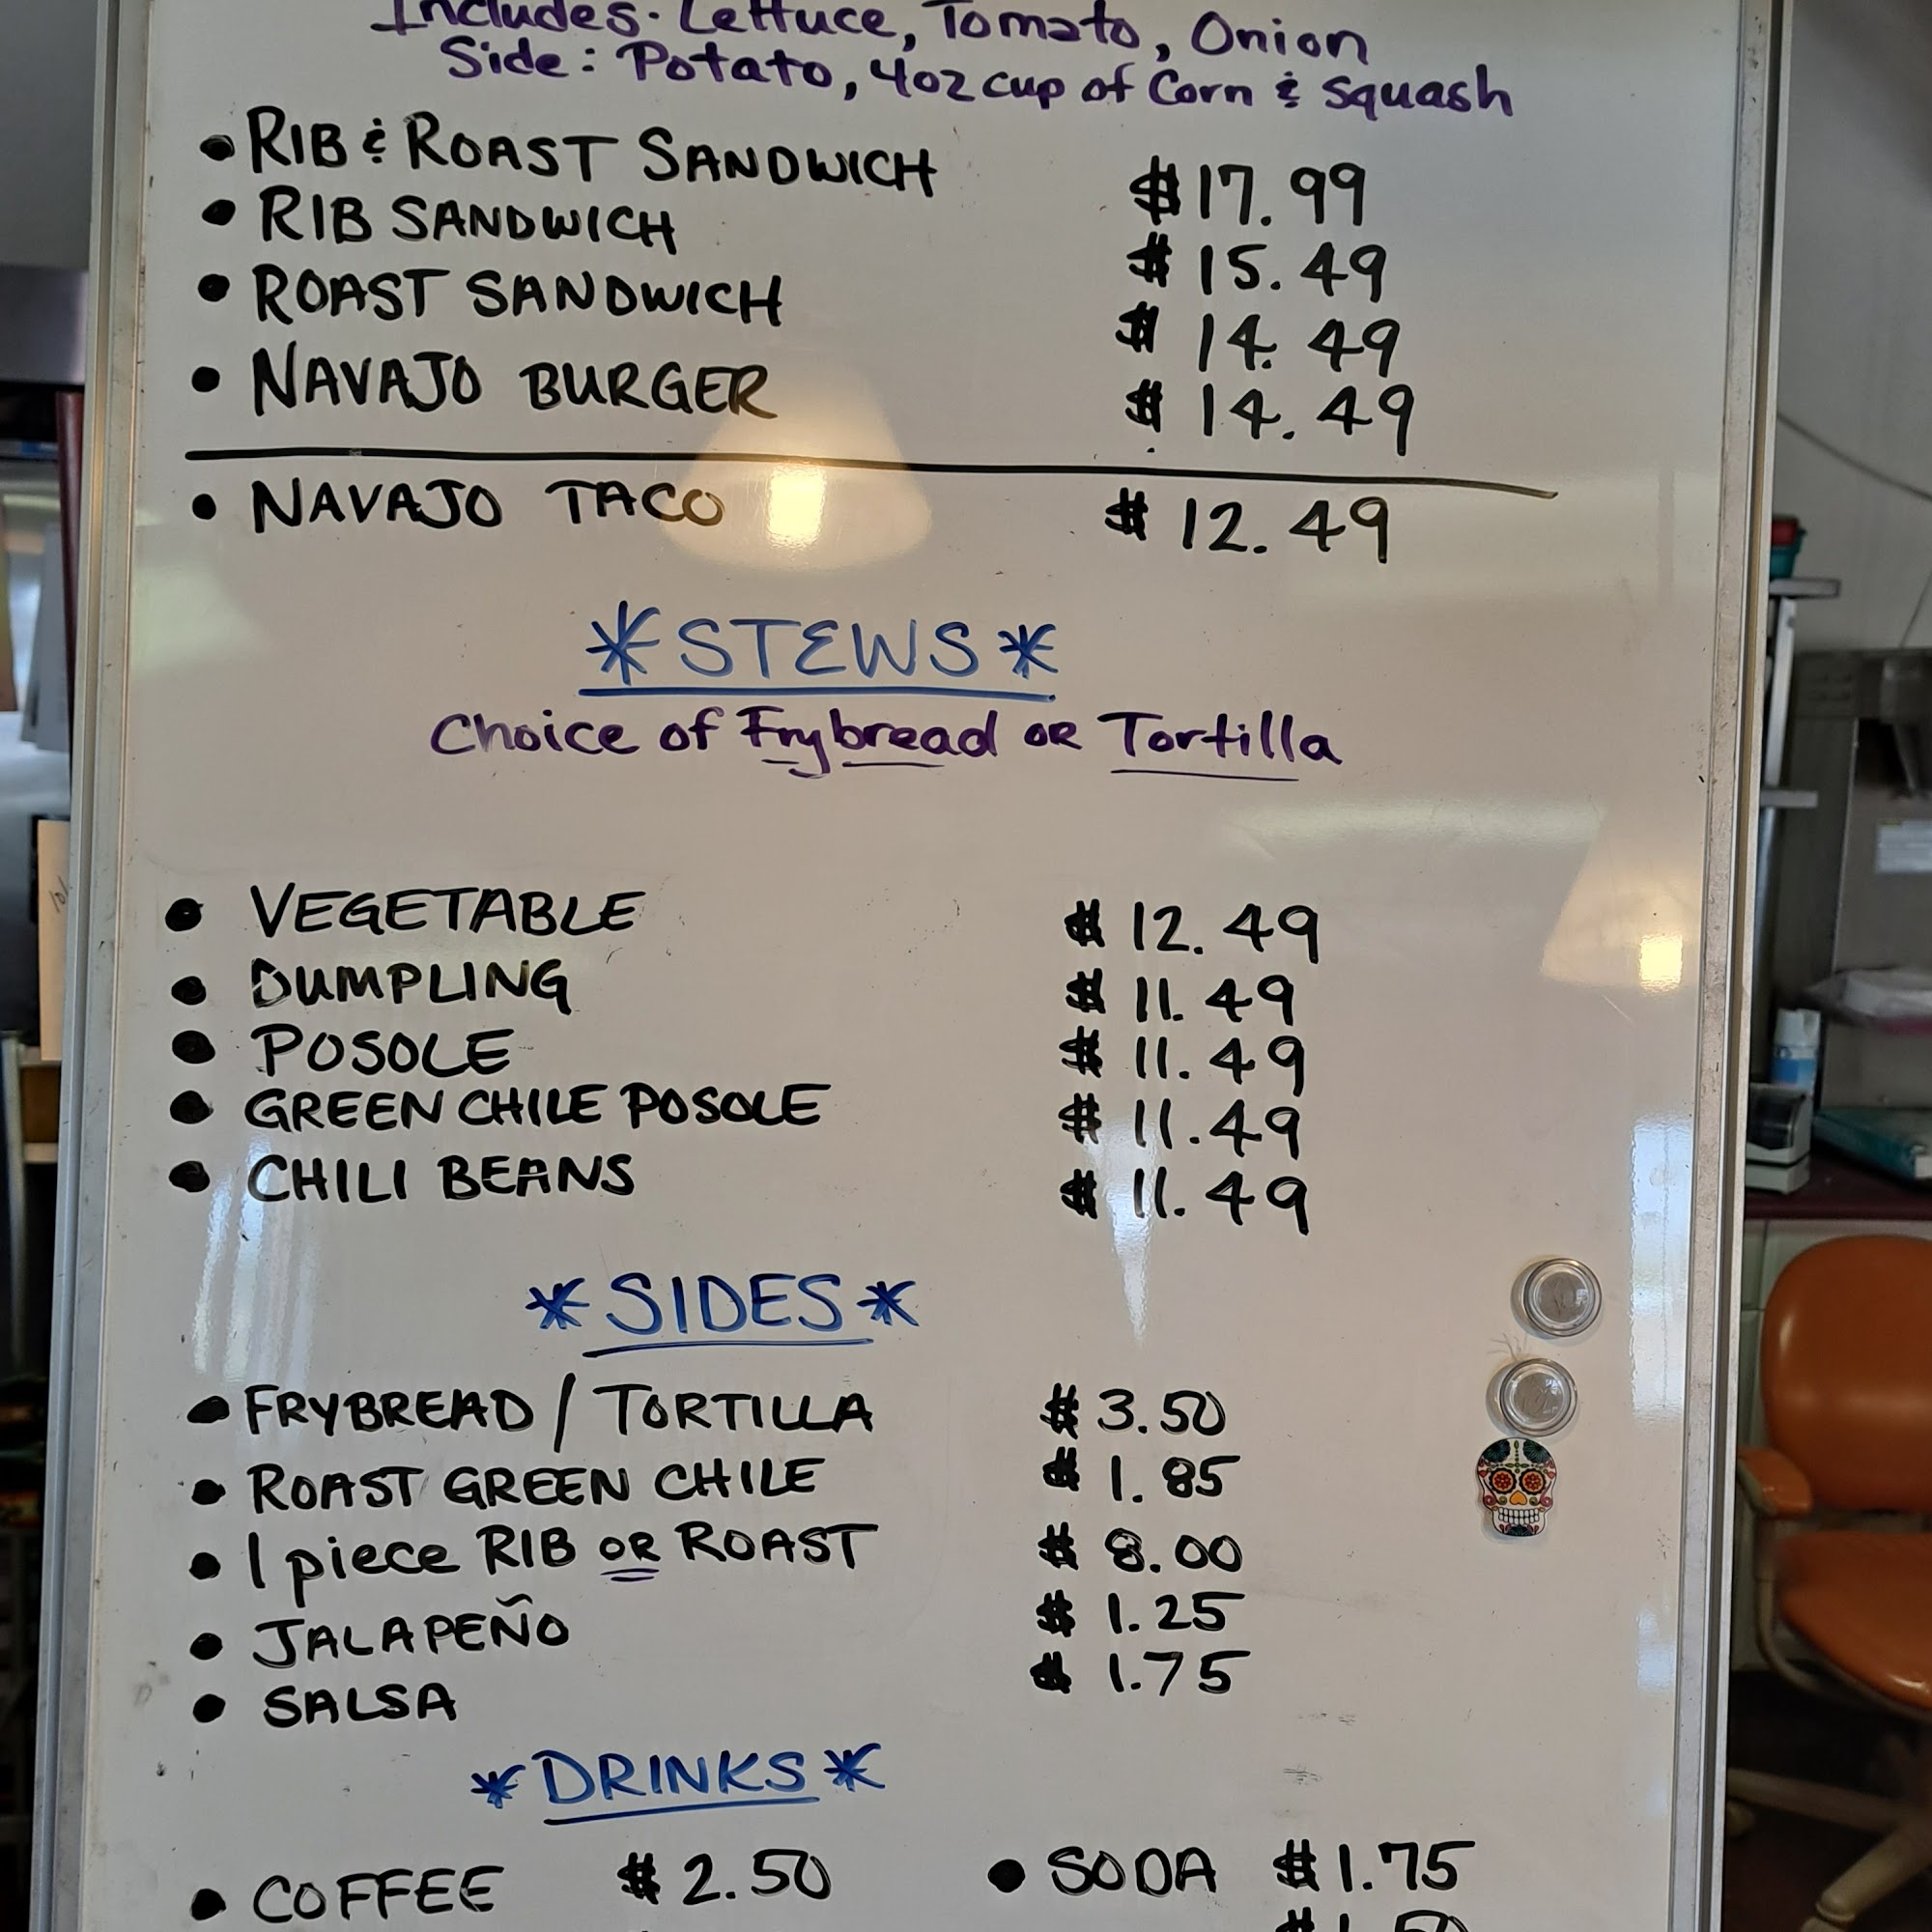 Includes: Lettuce, Tomato, Onion
Side: Potato, 4oz cup of Corn & Squash
• RIB & ROAST SANDWICH $17.99
• RIB SANDWICH $15.49
• ROAST SANDWICH $14.49
• NAVAJO BURGER $14.49
• NAVAJO TACO $12.49
*STEWS*
Choice of Frybread OR Tortilla
• VEGETABLE $12.49
• DUMPLING $11.49
• POSOLE $11.49
• GREEN CHILE POSOLE $11.49
• CHILI BEANS $11.49
*SIDES*
• FRYBREAD / TORTILLA $3.50
• ROAST GREEN CHILE $1.85
• 1 piece RIB OR ROAST $8.00
• JALAPEÑO $1.25
• SALSA $1.75
*DRINKS*
• COFFEE $2.50 • SODA $1.75